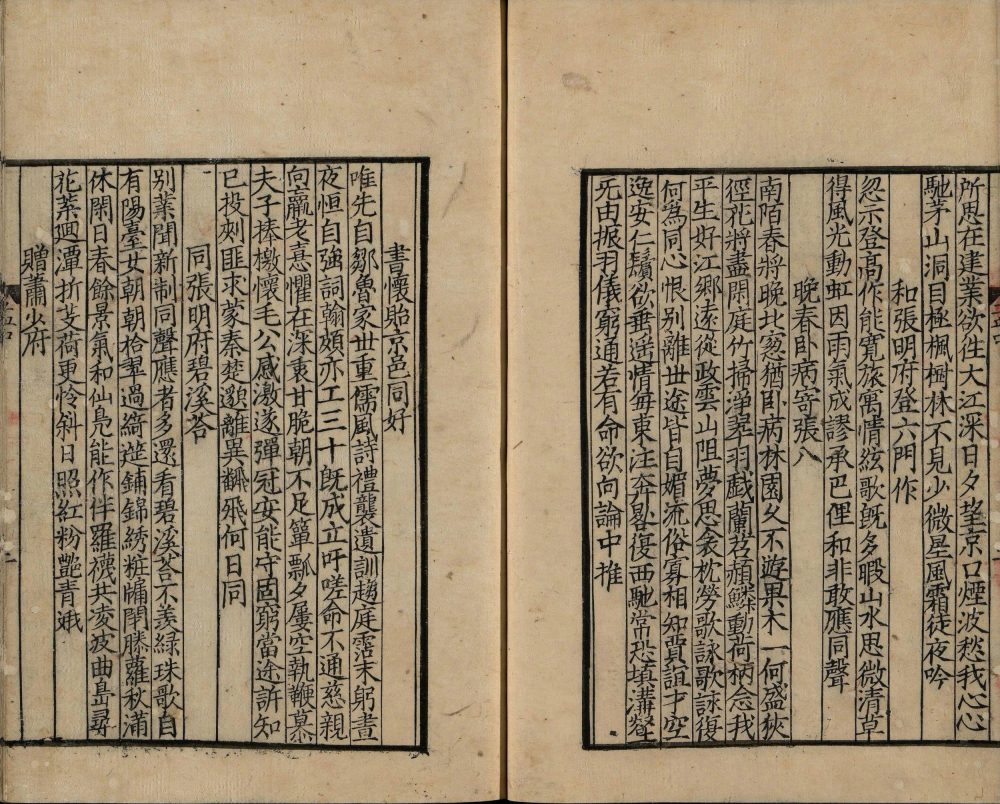 所思在建業欲往大江深日夕望京口煙波愁我心心
馳茅山洞目極楓樹林不見少微星風霜徒夜吟
和張明府登六門作
忽示登高作能寬旅寓情絃歌既多暇山水思微清草
得風光動虹因雨氣成謬承巴俚和非敢應同聲
晚春臥病寄張八
南陌春將晚北窓猶臥病林園久不遊果木一何盛狹
徑花將盡閑庭竹掃淨翠羽戲蘭苕頳鱗動荷柄念我
平生好江鄉遠從政雲山阻夢思衾枕勞歌詠歌詠復
何爲同心恨別離世途皆自媚流俗寡相知賈誼才空
逸安仁鬢欲垂遥情每東注奔晷復西馳常恐填溝壑
无由振羽儀窮通若有命欲向論中推
書懷貽京邑同好
唯先自鄒魯家世重儒風詩禮襲遺訓趨庭霑末躬晝
夜恒自強詞翰頗亦工三十既成立吁嗟命不通慈親
向羸老喜懼在深衷甘脆朝不足簞瓢夕屢空執鞭慕
夫子捧檄懷毛公感激遂彈冠安能守固窮當途訴知
已投刺匪求蒙秦楚邈離異飜飛何日同
同張明府碧溪荅
別業聞新制同聲應者多還看碧溪荅不羡綠珠歌自
有陽臺女朝朝拾翠過綺筵鋪錦綉粧牖閉藤蘿秋滿
休閑日春餘景氣和仙鳧能作伴羅襪共凌波曲島尋
花葉廻潭折芰荷更怜斜日照紅粉艷青娥
贈蕭少府